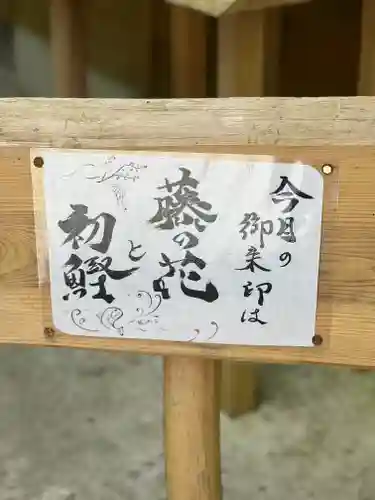 今月の
御朱印は
藤の花
と
初鰹